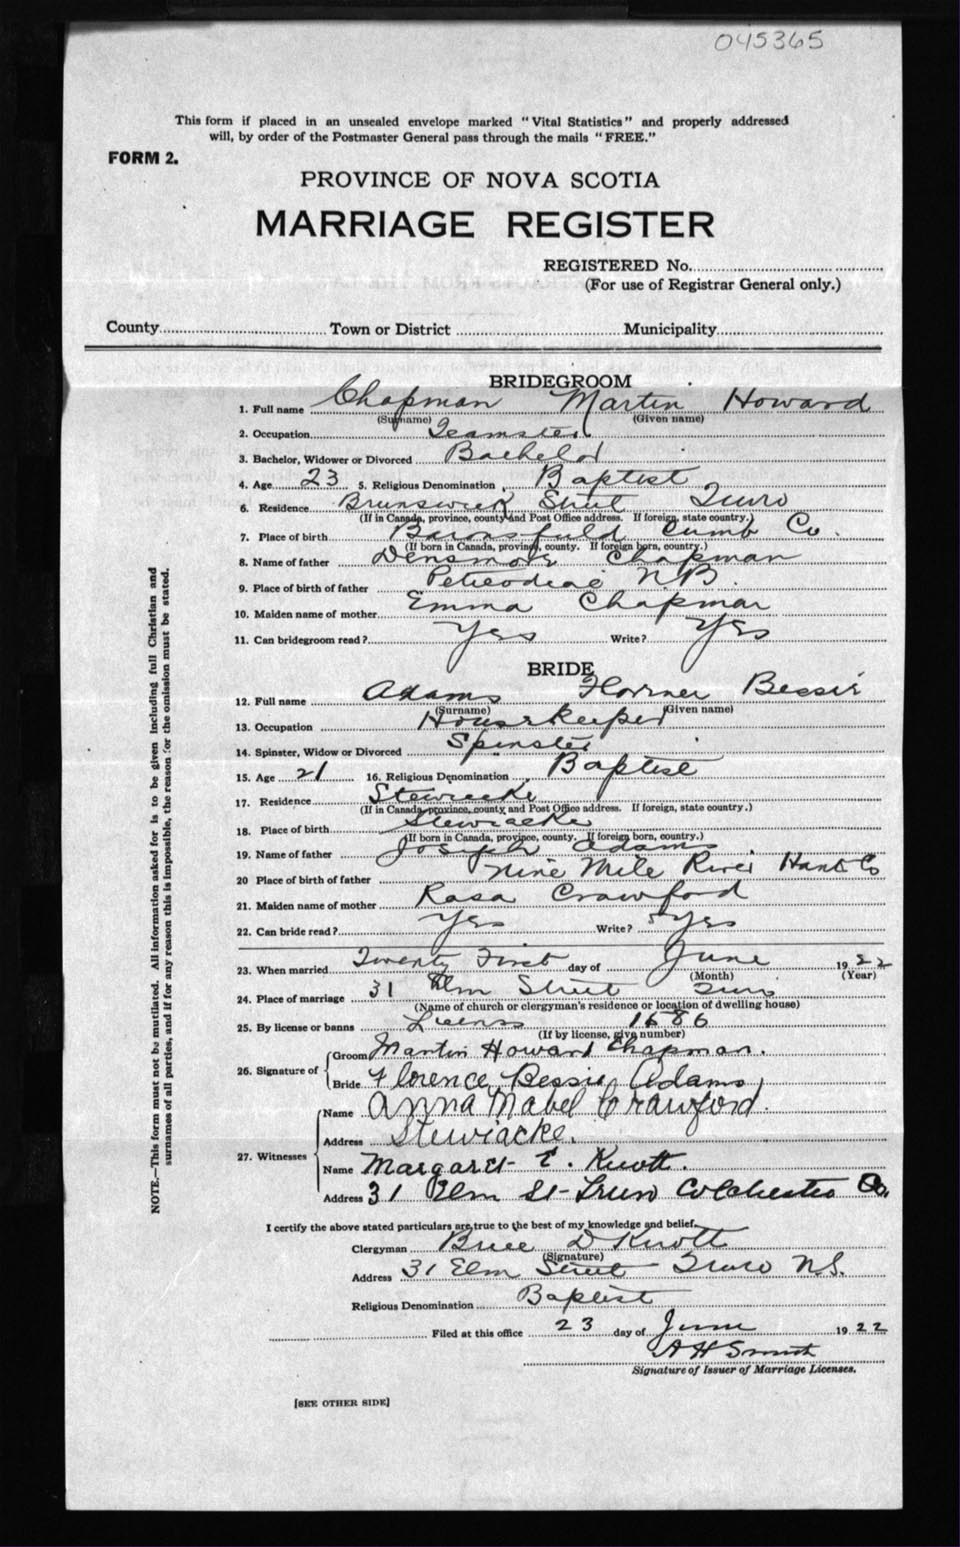 045365
This form if placed in an unsealed envelope marked "Vital Statistics" and properly addressed
will, by order of the Postmaster General pass through the mails "FREE."
FORM 2.
PROVINCE OF NOVA SCOTIA
MARRIAGE REGISTER
REGISTERED No.
(For use of Registrar General only.)
County Town or District Municipality
BRIDEGROOM
1. Full name Chapman Martin Howard
(Surname) (Given name)
2. Occupation Teamster
3. Bachelor, Widower or Divorced Bachelor
4. Age 23 5. Religious Denomination Baptist
6. Residence Brunswick Street Truro
(If in Canada, province, county and Post Office address. If foreign, state country.)
7. Place of birth Baronsfield Cumb Co.
(If born in Canada, province, county. If foreign born, country.)
8. Name of father Densmore Chapman
9. Place of birth of father Peticodiac N.B.
10. Maiden name of mother Emma Chapman
11. Can bridegroom read? Yes Write? Yes
BRIDE
12. Full name Adams Bessie
(Surname) (Given name)
13. Occupation Housekeeper
14. Spinster, Widow or Divorced Spinster
15. Age 21 16. Religious Denomination Baptist
17. Residence Stewiacke
(If in Canada, province, county and Post Office address. If foreign, state country.)
18. Place of birth Stewiacke
(If born in Canada, province, county. If foreign born, country.)
19. Name of father Joseph Adams
20 Place of birth of father Nine Mile River Hants Co
21. Maiden name of mother Rasa Crawford
22. Can bride read? Yes Write? Yes
23. When married Twenty First day of June 1922
(Month) (Year)
24. Place of marriage 31 Elm Street Truro
(Name of church or clergyman's residence or location of dwelling house)
25. By license or banns License 1686
(If by license, give number)
26. Signature of Groom Martin Howard Chapman.
Bride Florence Bessie Adams
27. Witnesses Name Anna Mabel Crawford.
Address Stewiacke.
Name Margaret E. Knott.
Address 31 Elm St- Truro Colchester Co.
I certify the above stated particulars are true to the best of my knowledge and belief.
Clergyman Brice D Knott
(Signature)
Address 31 Elm Street Truro N.S.
Religious Denomination Baptist
Filed at this office 23 day of June 1922
A H Smith
Signature of Issuer of Marriage Licenses.
[SEE OTHER SIDE]
NOTE.—This form must not be mutilated. All information asked for is to be given including full Christian and
surnames of all parties, and if for any reason this is impossible, the reason for the omission must be stated.